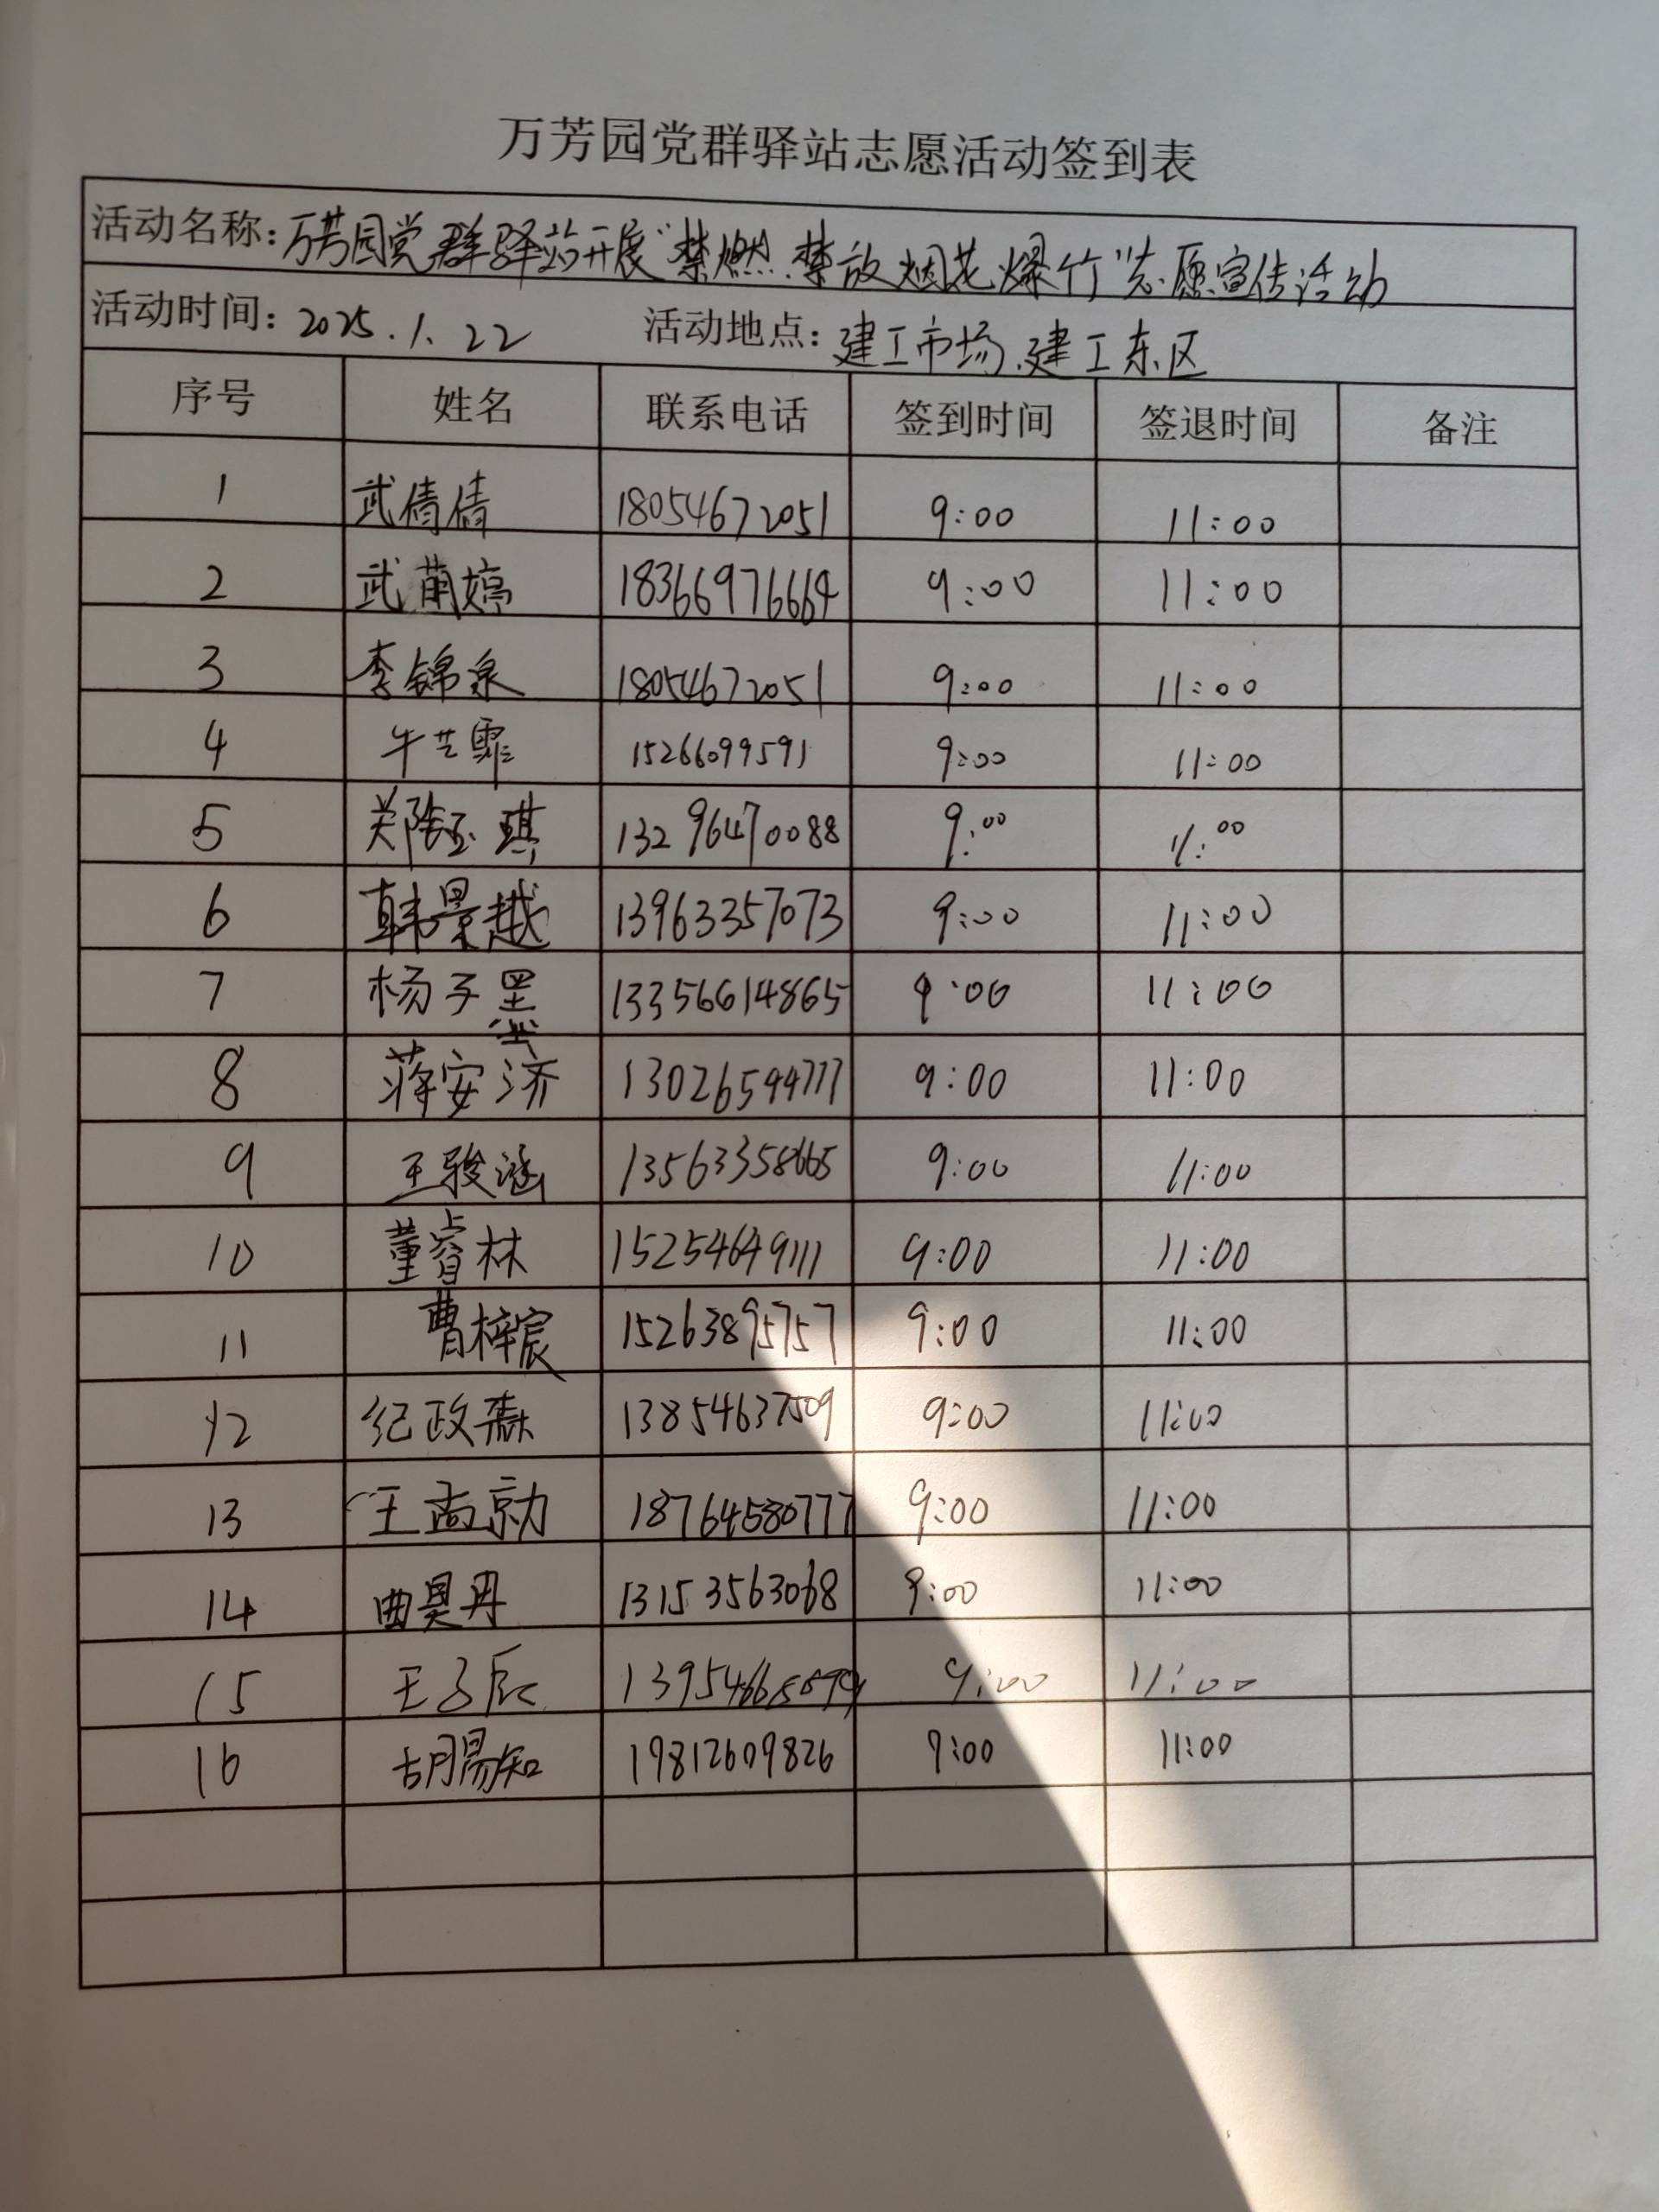 万芳园党群驿站志愿活动签到表
活动名称:万芳园党群驿站开展“禁燃、禁放烟花爆竹”志愿宣传活动
活动时间: 2025.1.22 活动地点: 建工市场、建工东区
序号 姓名 联系电话 签到时间 签退时间 备注
1 武倩倩 18054672051 9:00 11:00
2 武 婷 18366976664 9:00 11:00
3 李锦泉 18054672051 9:00 11:00
4 牛芸霏 15266099591 9:00 11:00
5 郑钰琪 13296470088 9:00 11:00
6 韩景越 13963357073 9:00 11:00
7 杨子墨 13356614865 9:00 11:00
8 蒋安济 13026594777 9:00 11:00
9 王骏涵 13563358665 9:00 11:00
10 董睿林 15254649111 9:00 11:00
11 曹梓宸 15263895757 9:00 11:00
12 纪政霖 13854637509 9:00 11:00
13 王尚勍 18764580777 9:00 11:00
14 曲昊丹 13153563068 9:00 11:00
15 王子辰 9:00 11:00
16 胡勗知 19812609826 9:00 11:00